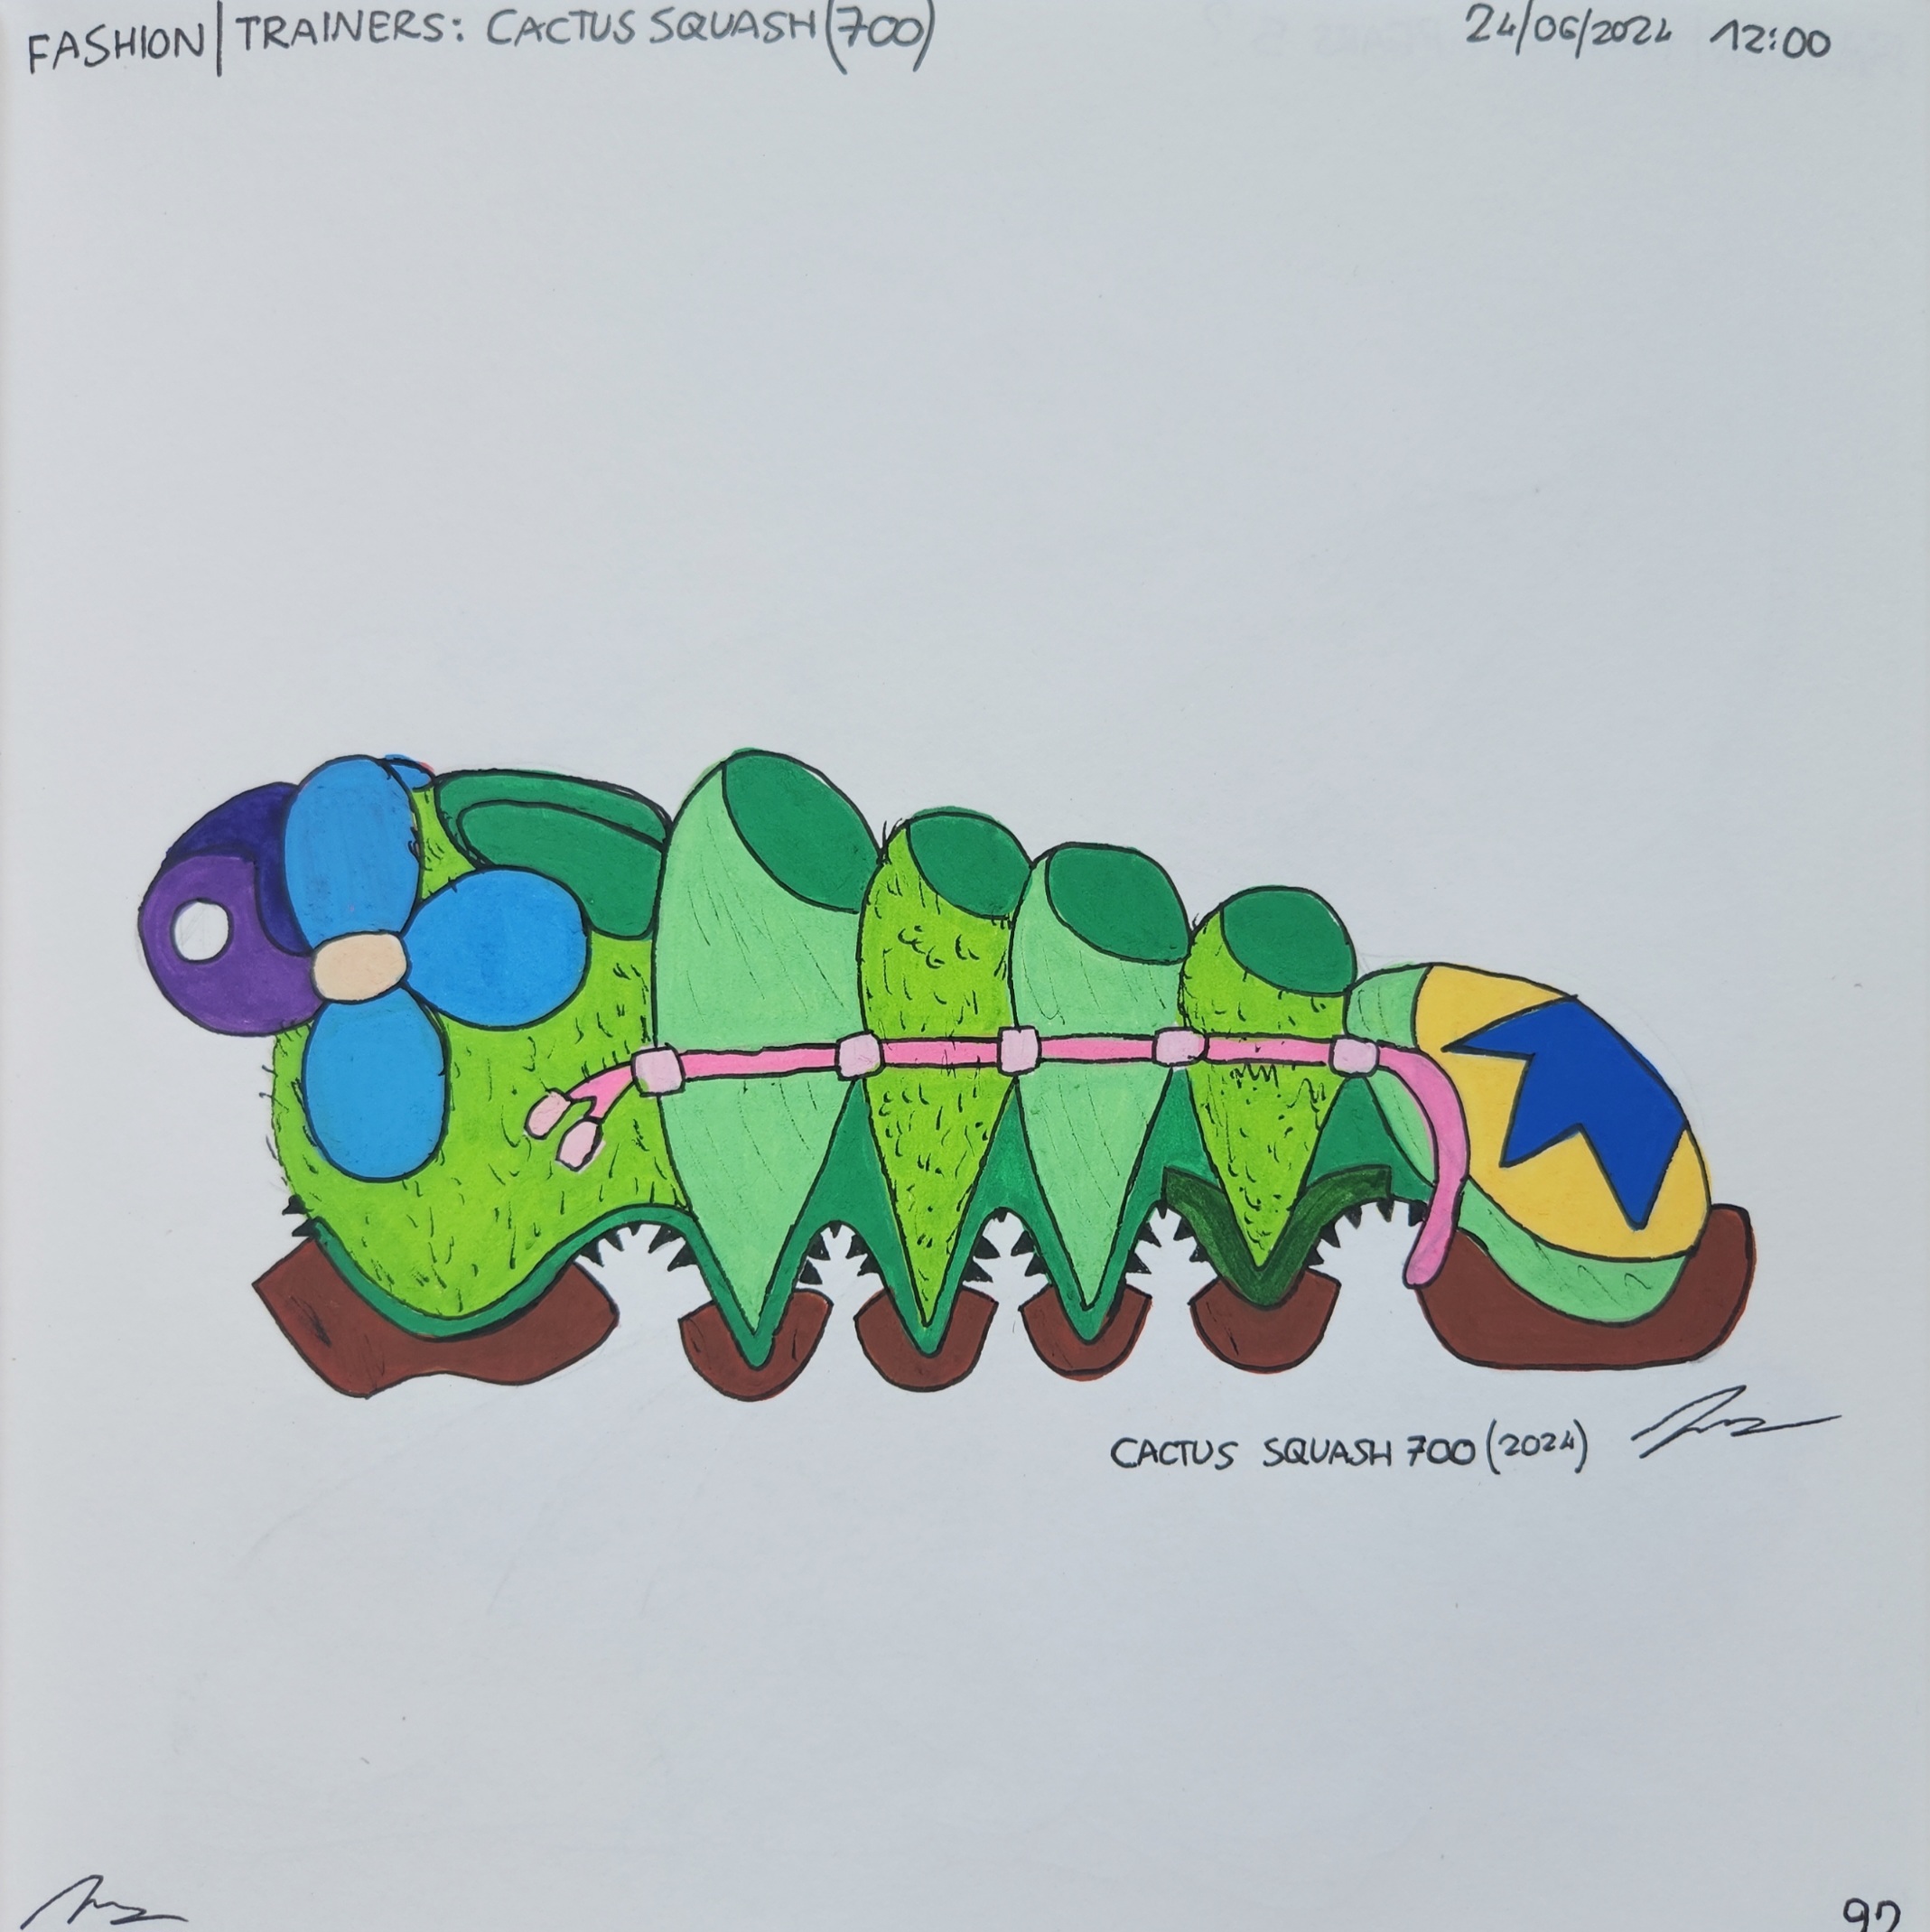 FASHION | TRAINERS: CACTUS SQUASH (700)
24/06/2024 12:00
CACTUS SQUASH 700 (2024)